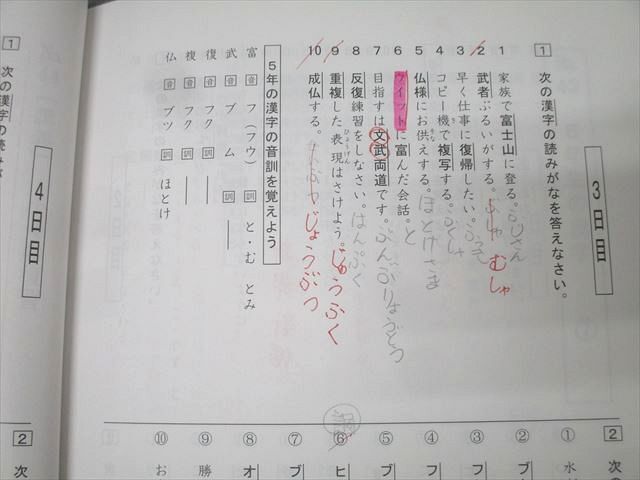 3日目
1 次の漢字の読みがなを答えなさい。
1 家族で富士山に登る。ふじさん
2 武者ぶるいがする。むしゃ
3 早く仕事に復帰したい。
4 コピー機で複写する。ふくしゃ
5 仏様にお供えする。ほとけさま
6 ウイットに富んだ会話。と
7 目指すは文武両道です。ぶんぶりょうどう
8 反復練習をしなさい。はんぷく
9 重複した表現はさけよう。じゅうふく
10 成仏する。じょうぶつ
5年の漢字の音訓を覚えよう
富 音 フ(フウ) 訓 と・む とみ
武 音 ブ ム 訓 ―
復 音 フク 訓 ―
複 音 フク 訓 ―
仏 音 ブツ 訓 ほとけ
2 次
① 水
② ブ
③ フ
④ フ
⑤ ブ
⑥ ヒ
⑦ ブ
⑧ オ
⑨ 勝
⑩ お
4日目
1 次の漢字の読みが
2 次